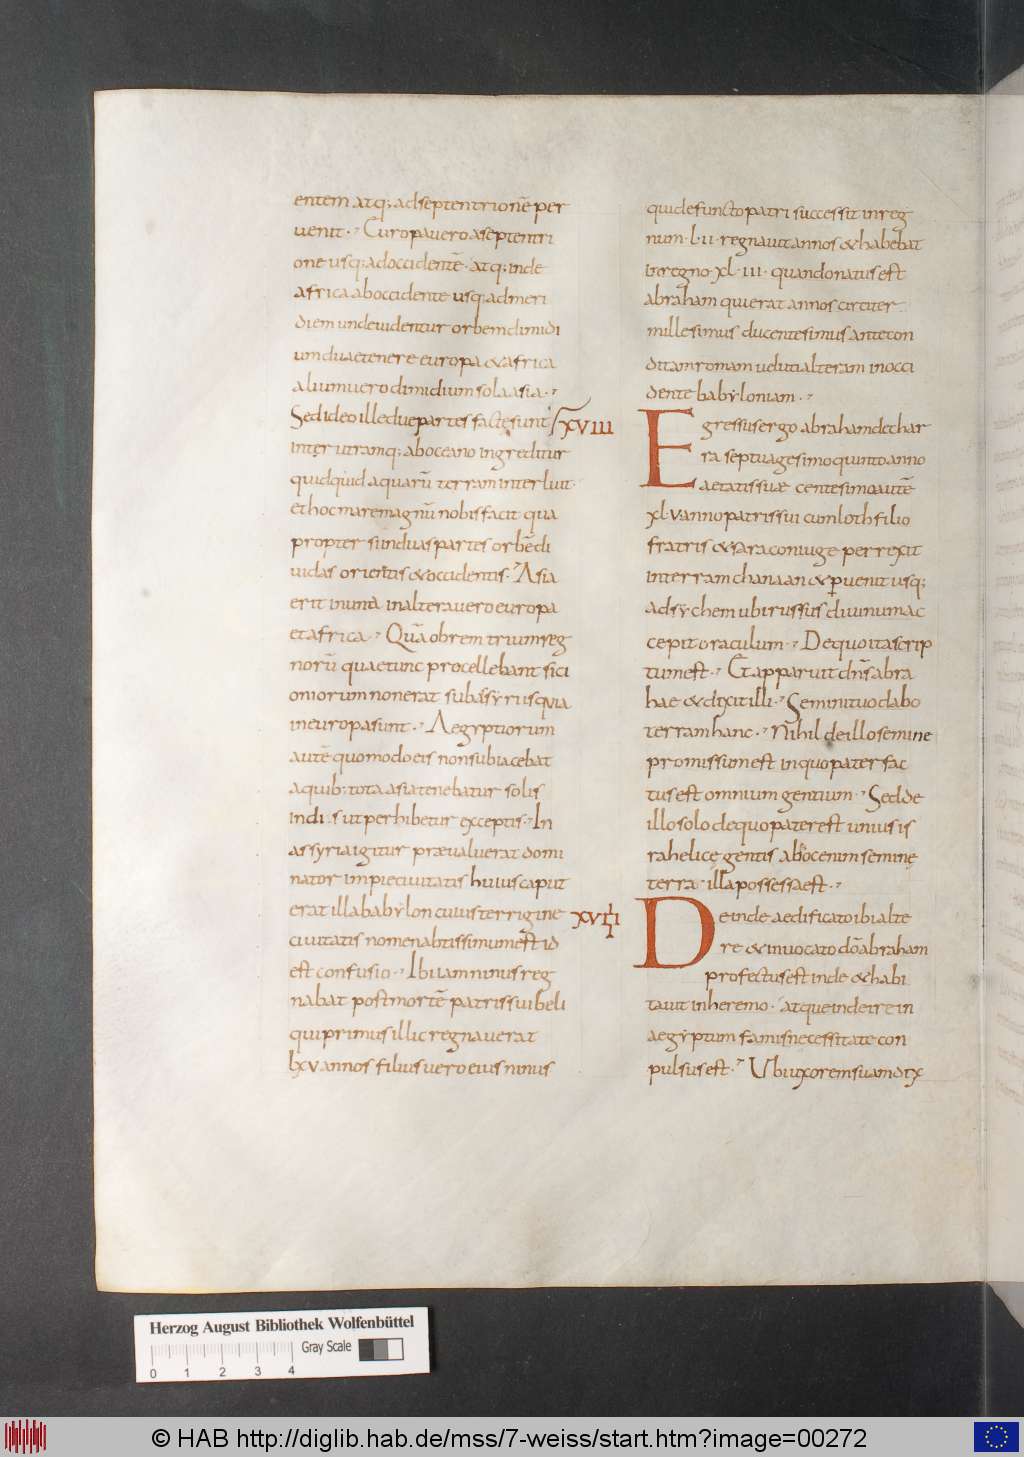 entem atq; ad septentrionē per
uenit · Europa uero a septentri
one usq; ad occidentē · atq; inde
africa ab occidente usq; ad meri
diem unde uidentur orbem dimidi
um duae tenere europa & africa
alium uero dimidium sola asia ·
Sed ideo ille due partes factę sunt
XVIII
inter utramq; ab oceano ingreditur
quidquid aquarū terram interluit ·
et hoc mare magnū nobis facit qua
propter sin duas partes orbē di
uidas orientis & occidentis · Asia
erit in una in altera uero europa
et africa · Quā obrem trium reg
norū quae tunc procellebant sici
oniorum non erat sub assyriis quia
in europa sunt · Aegyptiorum
autē quomodo eis non subiacebat
a quib; tota asia tenebatur solis
indis ut perhibetur exceptis · In
assyria igitur praeualuerat domi
nator impie ciuitatis huius caput
erat illa babylon cuius terrigine
ciuitatis nomen abtissimum est id
est confusio · Ibi iam ninus reg
nabat post mortē patris sui beli
qui primus illic regnauerat
lxv annos filius uero eius ninus
qui defuncto patri successit in reg
num · l · ii · regnauit annos & habebat
in regno xl · iii · quando natus est
abraham qui erat annos circiter
millesimus ducentesimus ante con
ditam romam ueluti alteram in occi
dente babyloniam ·
Egressus ergo abraham de char
ra septuagesimo quinto anno
aetatis suae centesimo autē
xl · v · anno patris sui cum loth filio
fratris & sara coniuge perrexit
in terram chanaan & puenit usq;
ad sychem ubi russus diuinum ac
cepit oraculum · De quo ita scrip
tum est · Et apparuit dns̄ abra
hae & dixit illi · Semini tuo dabo
terram hanc · Nihil de illo semine
promissum est in quo pater fac
tus est omnium gentium · Sed de
illo solo de quo pater est unius is
rahelicę gentis ab hoc enim seminę
terra illa possessa est ·
XVIIII
Deinde aedificato ibi alte
re & inuocato dō abraham
profectus est inde & habi
tauit in heremo · atque inde ire in
aegyptum famis necessitate con
pulsus est · Ubi uxorem suam dix
Herzog August Bibliothek Wolfenbüttel
Gray Scale
0 1 2 3 4
© HAB http://diglib.hab.de/mss/7-weiss/start.htm?image=00272